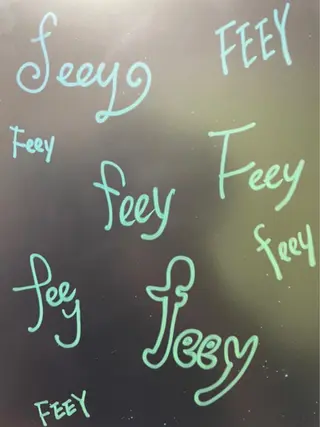 feey
FEEY
Feey
Feey
feey
feey
feey
feey
FEEY